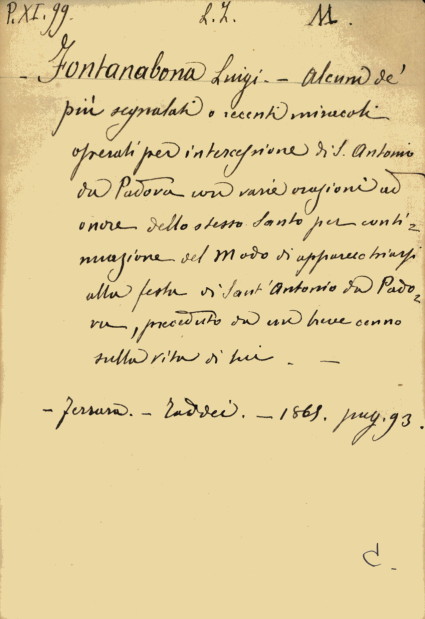 P. XI. 99. L. Z. M.
- Fontanabona Luigi. - Alcuni de'
più segnalati o recenti miracoli
operati per intercessione di S. Antonio
da Padova con varie orazioni ad
onore dello stesso Santo per conti=
nuazione del Modo di apparecchiarsi
alla festa di Sant'Antonio da Pado=
va, preceduto da un breve cenno
sulla vita di lui. -
- Ferrara. - Taddei. - 1865. pag. 93.
C.